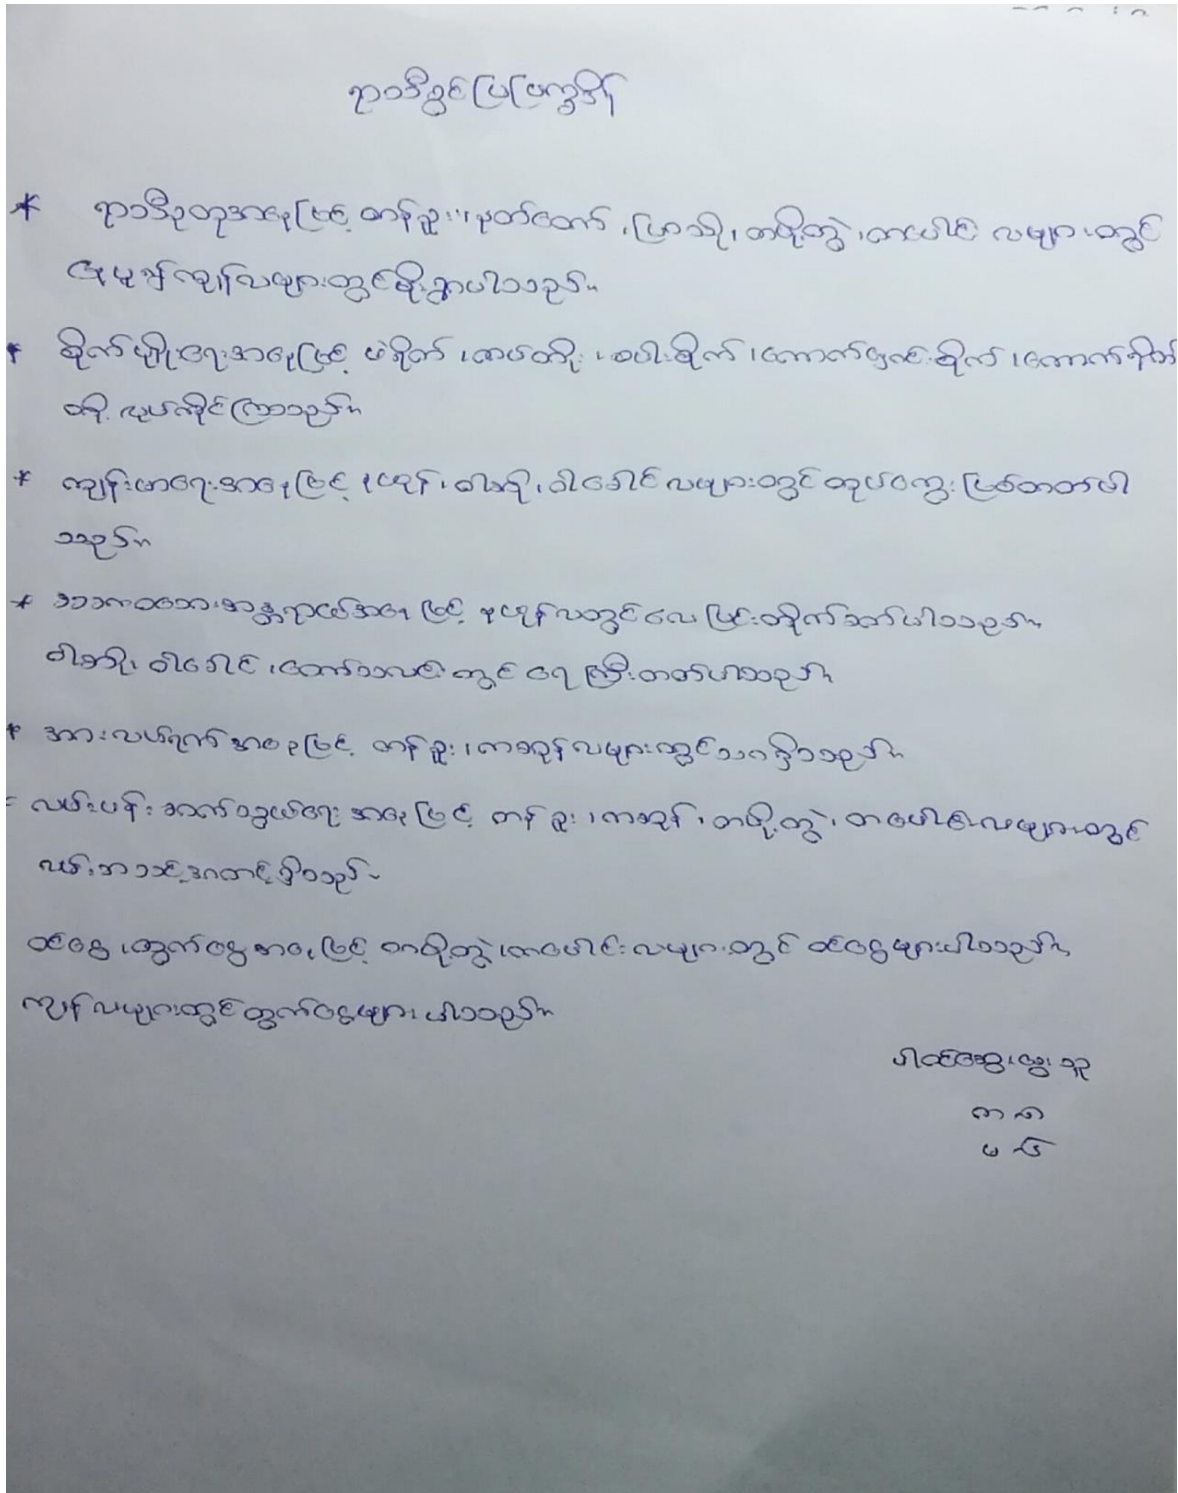 ရာသီခွင်ပြပြက္ခဒိန်
* ရာသီဥတုအနေဖြင့် တန်ခူး၊ နတ်တော်၊ ပြာသို၊ တပို့တွဲ၊ တပေါင်း လများတွင်
ပူ ကျန်လများတွင်မိုးရွာပါသည်။
* စိုက်ပျိုးရေးအနေဖြင့် ပဲရိတ်၊ ထယ်ထိုး၊ စပါးစိုက်၊ ကောက်ရှင်းစိုက်၊ ကောက်ရိတ်
တို့ လုပ်ကိုင်ကြသည်။
* ကျန်းမာရေးအနေဖြင့် နယုန်၊ ဝါဆို၊ ဝါခေါင် လများတွင် တုပ်ကွေး ဖြစ်တတ်ပါ
သည်။
* သဘာဝဘေးအန္တရာယ်အနေဖြင့် နယုန်လတွင် လေပြင်းတိုက်ခတ်ပါသည်။
ဝါဆို၊ ဝါခေါင်၊ တော်သလင်းတွင် ရေကြီးတတ်ပါသည်။
* အားလပ်ရက်အနေဖြင့် တန်ခူး၊ ကဆုန်လများတွင် ရှိသည်။
- လမ်းပန်းဆက်သွယ်ရေးအနေဖြင့် တန်ခူး၊ ကဆုန်၊ တပို့တွဲ၊ တပေါင်းလများတွင်
လမ်းအသင့်အတင့်ရှိသည်။
ဝင်ငွေ၊ ထွက်ငွေအနေဖြင့် တပို့တွဲ၊ တပေါင်းလများတွင် ဝင်ငွေများပါသည်။
ကျန်လများတွင်ထွက်ငွေများပါသည်။
ပါဝင်ဆွေးနွေးသူ